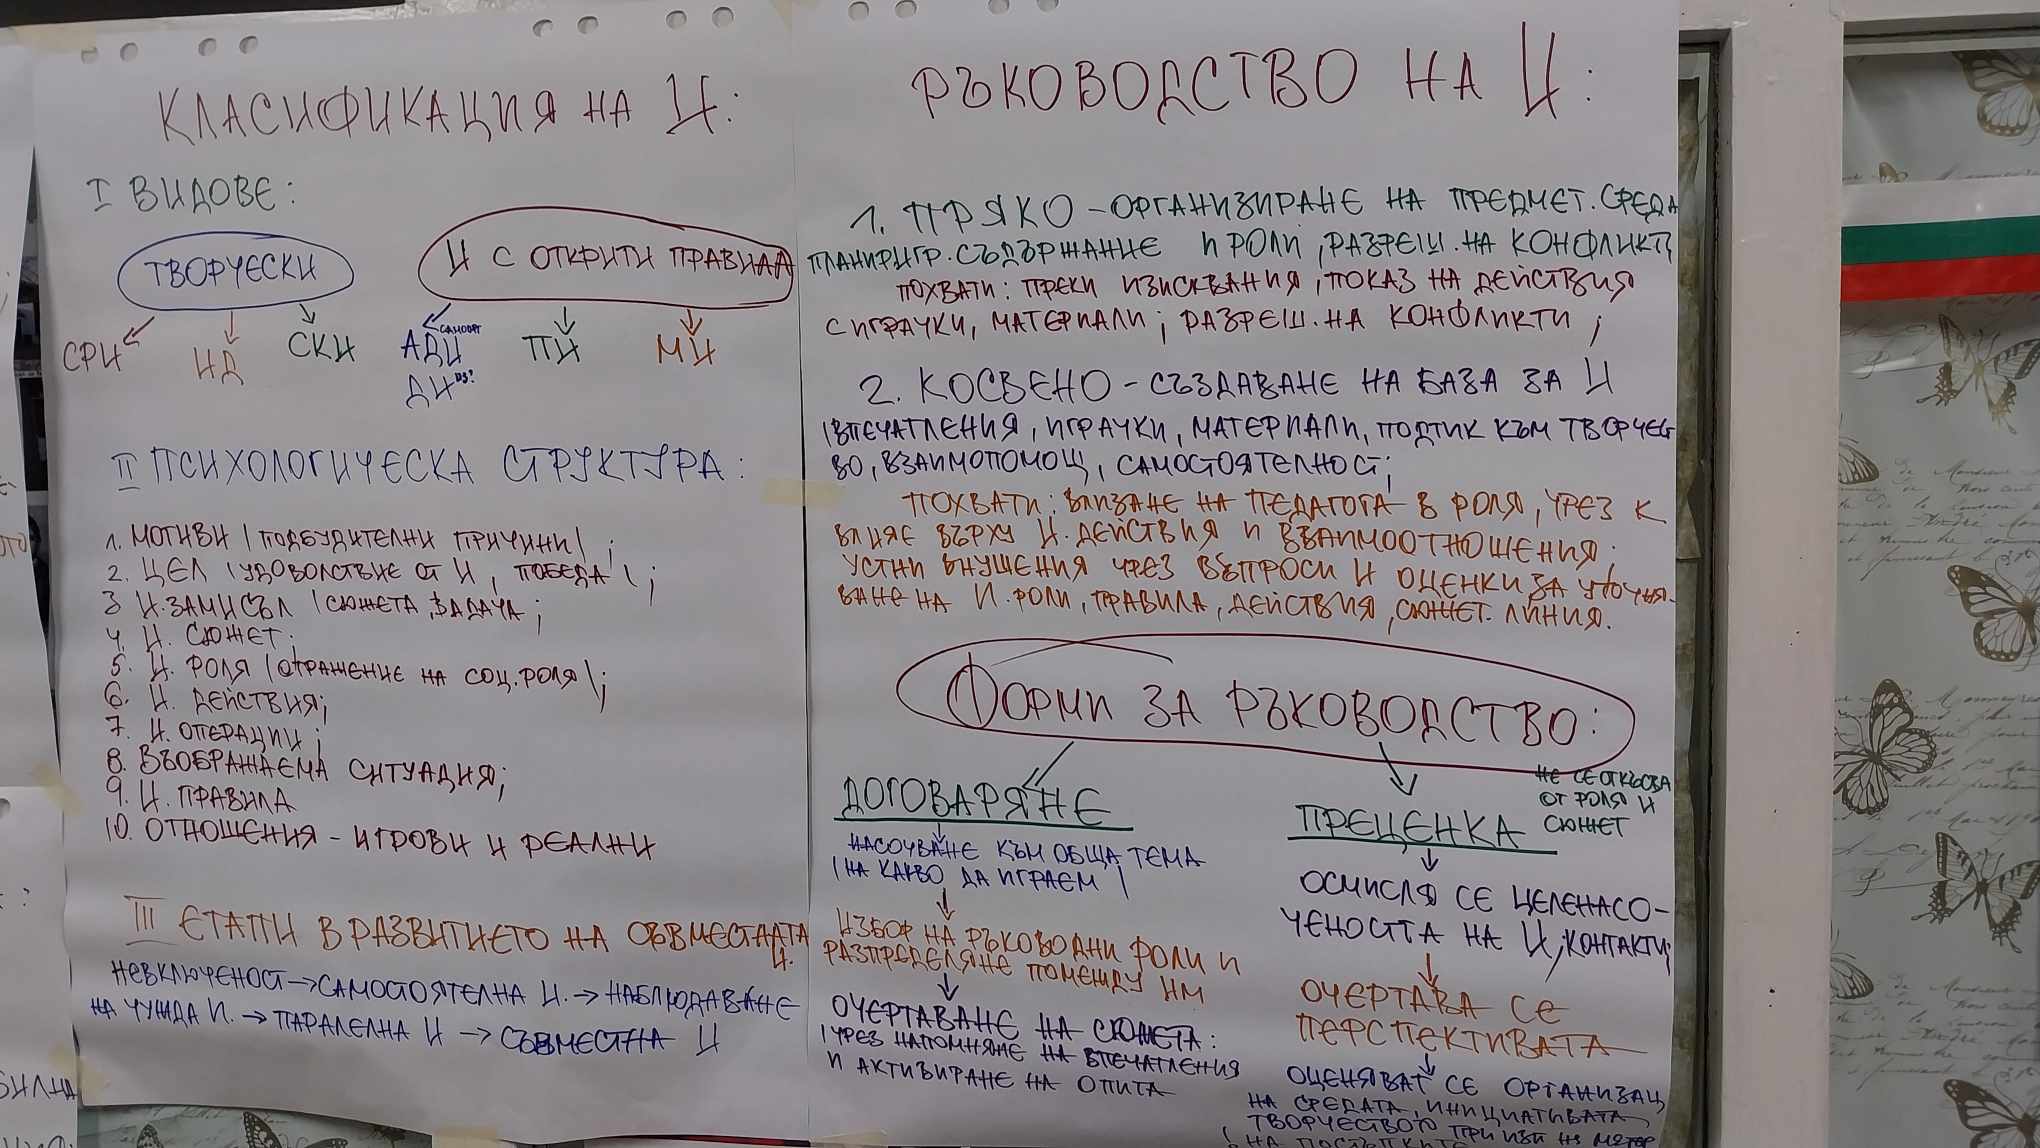 КЛАСИФИКАЦИЯ НА И:
I ВИДОВЕ:
ТВОРЧЕСКИ
И С ОТКРИТИ ПРАВИЛА
СРИ
ИД
СКИ
АДИ
ДИ
ПИ
МИ
II ПСИХОЛОГИЧЕСКА СТРУКТУРА:
1. МОТИВИ /ПОДБУДИТЕЛНИ ПРИЧИНИ/;
2. ЦЕЛ /УДОВОЛСТВИЕ ОТ И, ПОБЕДА/;
3 И.ЗАМИСЪЛ /СЮЖЕТА, ЗАДАЧА;
4. И. СЮЖЕТ;
5. И. РОЛЯ /ОТРАЖЕНИЕ НА СОЦ.РОЛЯ/;
6. И. ДЕЙСТВИЯ;
7. И. ОПЕРАЦИИ;
8. ВЪОБРАЖАЕМА СИТУАЦИЯ;
9. И. ПРАВИЛА
10. ОТНОШЕНИЯ - ИГРОВИ И РЕАЛНИ
III ЕТАПИ В РАЗВИТИЕТО НА СЪВМЕСТНАТА
И.
НЕВКЛЮЧЕНОСТ → САМОСТОЯТЕЛНА И. → НАБЛЮДАВАНЕ
НА ЧУЖДА И. → ПАРАЛЕЛНА И → СЪВМЕСТНА И
РЪКОВОДСТВО НА И:
1. ПРЯКО - ОРГАНИЗИРАНЕ НА ПРЕДМЕТ. СРЕДА
ПЛАНИР.ИГР. СЪДЪРЖАНИЕ И РОЛИ, РАЗРЕШ. НА КОНФЛИКТИ
ПОХВАТИ: ПРЕКИ ИЗИСКВАНИЯ, ПОКАЗ НА ДЕЙСТВИЯ
С ИГРАЧКИ, МАТЕРИАЛИ; РАЗРЕШ. НА КОНФЛИКТИ;
2. КОСВЕНО - СЪЗДАВАНЕ НА БАЗА ЗА И
/ВПЕЧАТЛЕНИЯ, ИГРАЧКИ, МАТЕРИАЛИ, ПОДТИК КЪМ ТВОРЧЕСТ
ВО, ВЗАИМОПОМОЩ, САМОСТОЯТЕЛНОСТ;
ПОХВАТИ: ВЛИЗАНЕ НА ПЕДАГОГА В РОЛЯ, ЧРЕЗ К
ВЛИЯЕ ВЪРХУ И. ДЕЙСТВИЯ И ВЗАИМООТНОШЕНИЯ;
УСТНИ ВНУШЕНИЯ ЧРЕЗ ВЪПРОСИ И ОЦЕНКИ ЗА УТОЧНЯ-
ВАНЕ НА И. РОЛИ, ПРАВИЛА, ДЕЙСТВИЯ, СЮЖЕТ. ЛИНИЯ.
ФОРМИ ЗА РЪКОВОДСТВО:
ДОГОВАРЯНЕ
НАСОЧВАНЕ КЪМ ОБЩА ТЕМА
/НА КАКВО ДА ИГРАЕМ/
ИЗБОР НА РЪКОВОДНИ РОЛИ И
РАЗПРЕДЕЛЯНЕ ПОМЕЖДУ ИМ
ОЧЕРТАВАНЕ НА СЮЖЕТА:
/ЧРЕЗ НАПОМНЯНЕ НА ВПЕЧАТЛЕНИЯ
И АКТИВИРАНЕ НА ОПИТА
ПРЕЦЕНКА
НЕ СЕ ОТКЪСВА
ОТ РОЛЯ И
СЮЖЕТ
ОСМИСЛЯ СЕ ЦЕЛЕНАСО-
ЧЕНОСТТА НА И, КОНТАКТИ;
ОЧЕРТАВА СЕ
ПЕРСПЕКТИВАТА
ОЦЕНЯВАТ СЕ ОРГАНИЗАЦ
НА СРЕДАТА, ИНИЦИАТИВАТА,
ТВОРЧЕСТВОТО ПРИ
НА ПОСТЪПКИТЕ